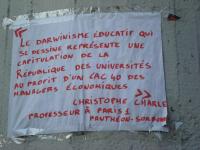 "
LE DARWINISME ÉDUCATIF QUI
SE DESSINE REPRÉSENTE UNE
CAPITULATION DE LA
RÉPUBLIQUE DES UNIVERSITÉS
AU PROFIT D'UN CAC 40 DES
MANAGERS ÉCONOMIQUES
"
CHRISTOPHE CHARLE
PROFESSEUR À PARIS 1
PANTHÉON-SORBONNE